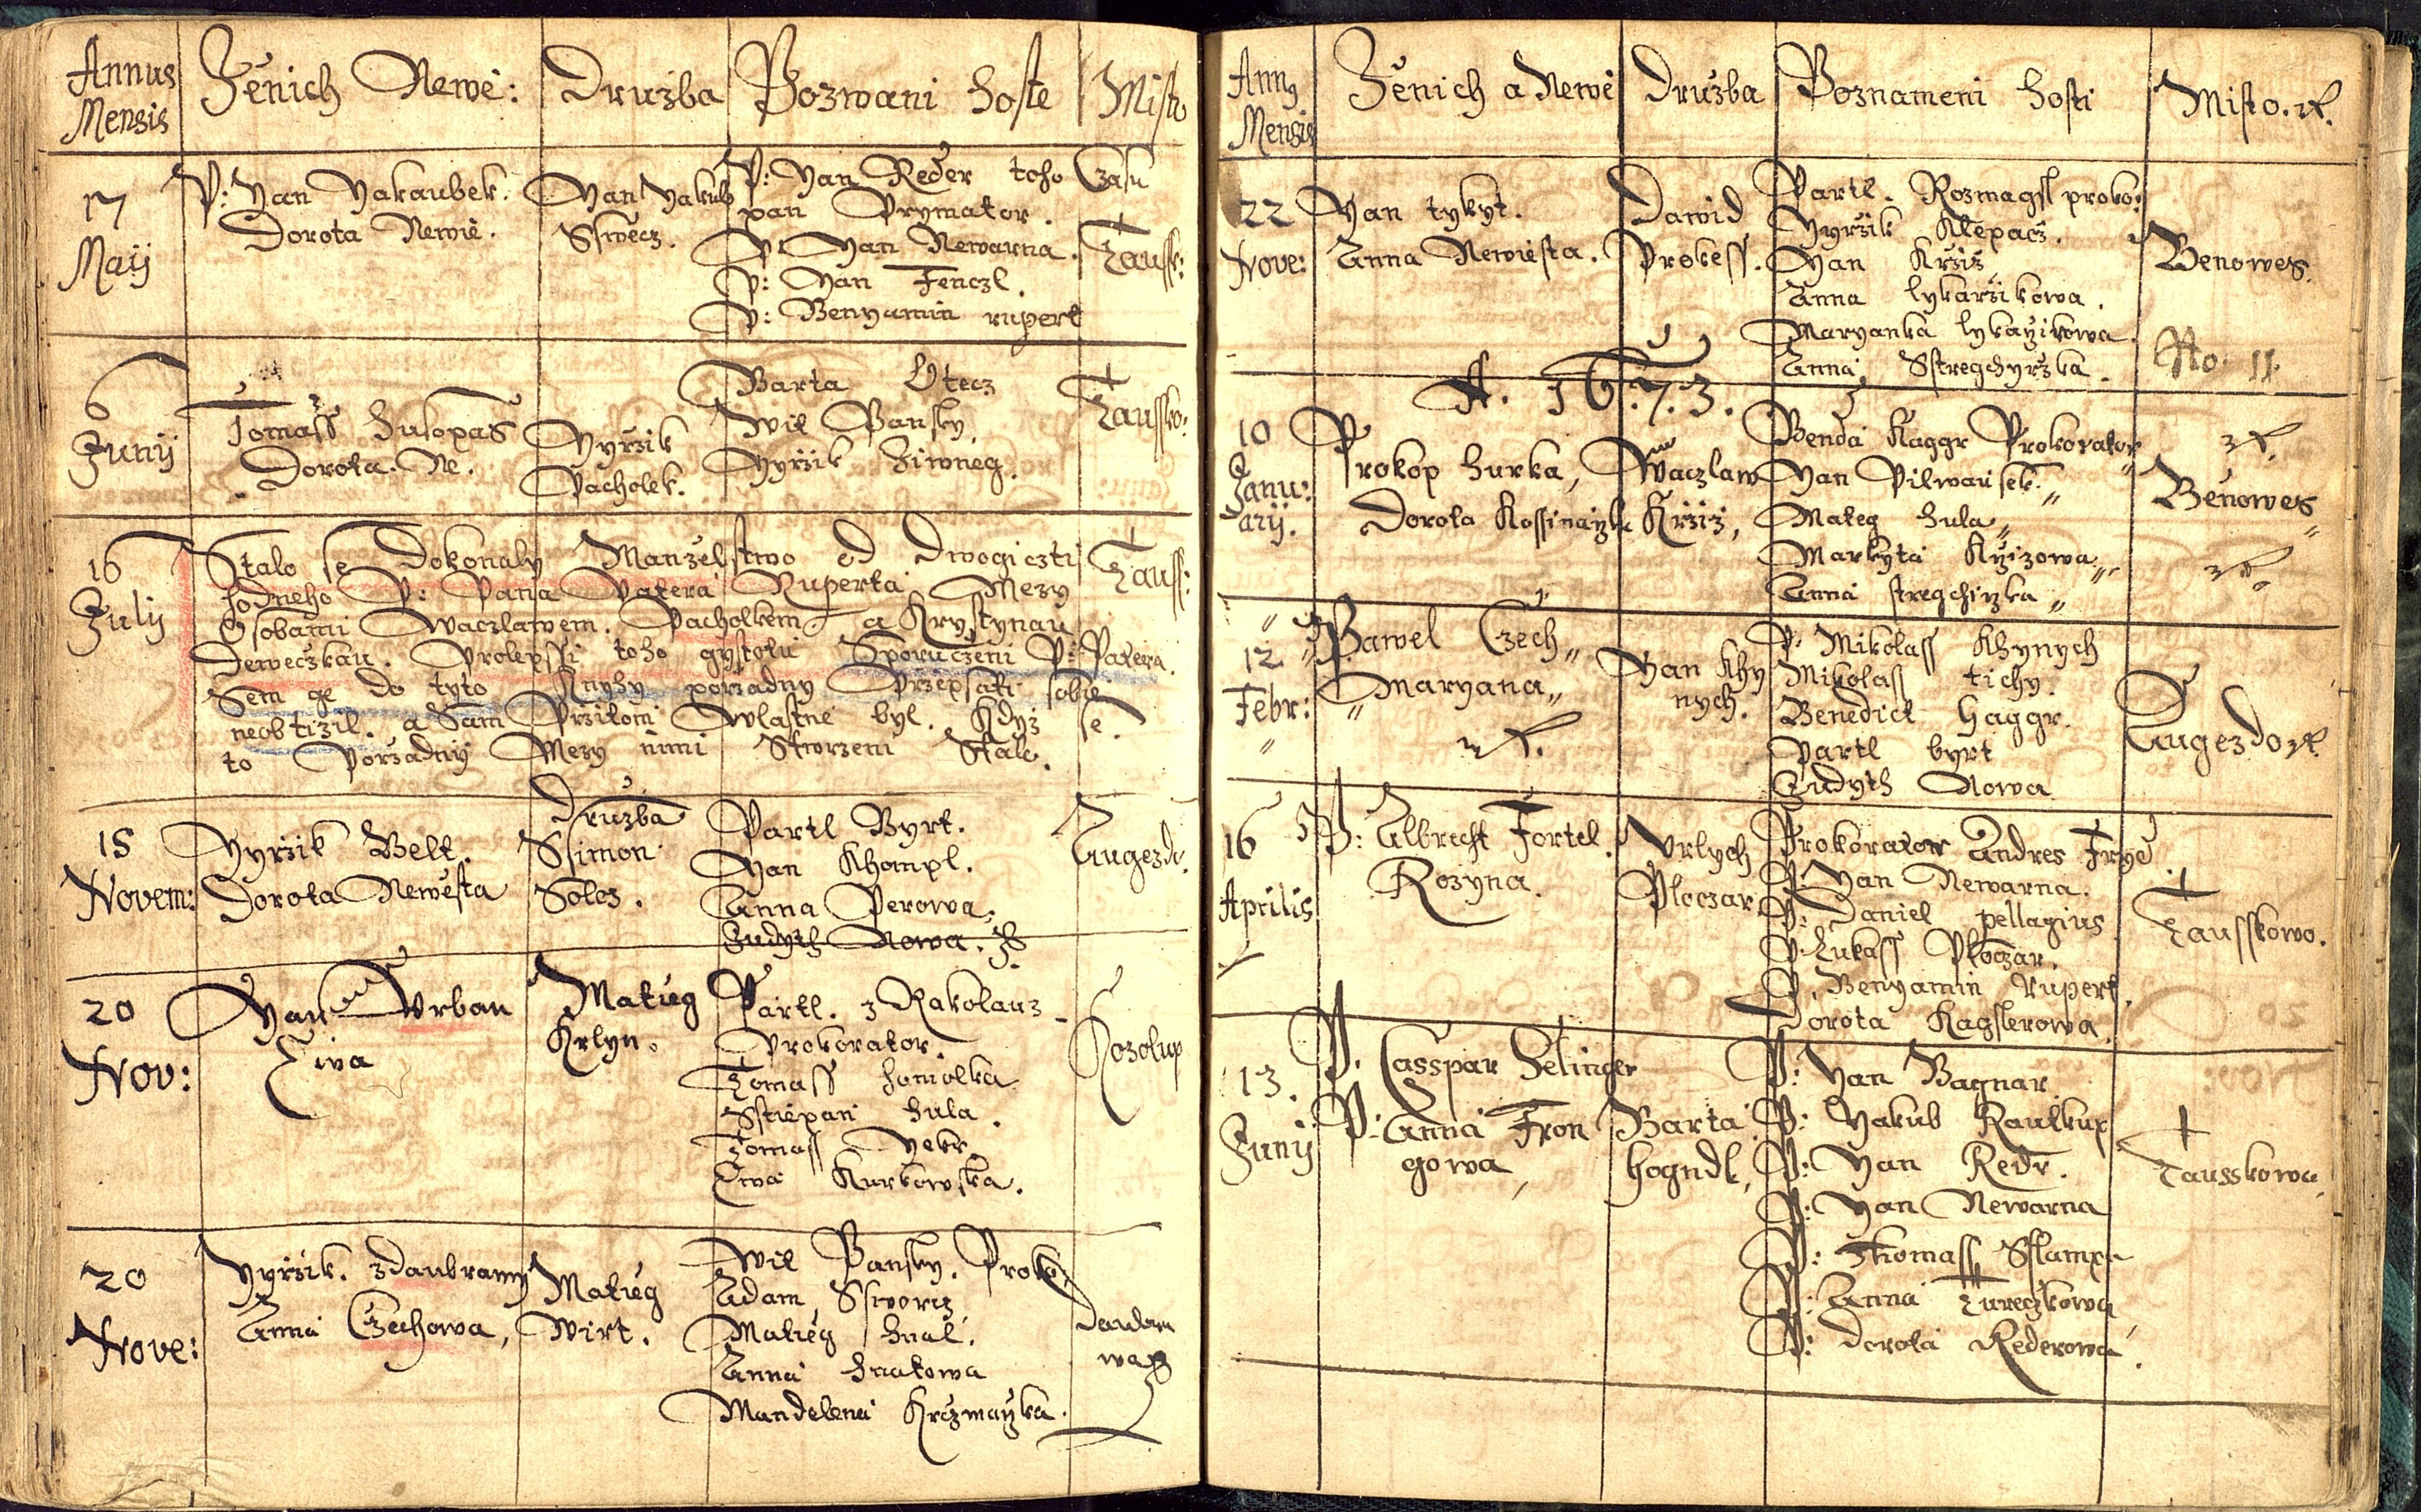 Annus Mensis Zenich Newe: Druzba Pozwani hoste Misto
17 Maij
P: Yan Yakaubek.
Dorota Newie.
Yan Yakub
Sswecz.
P: Yan Reder toho Czasu
pan Prymator.
P: Yan Newarna.
P: Yan Fenczl.
P: Benyamin rupert
Tausk:
6 Junij
Tomass husopas
Dorota. Ne.
Yyrzik
Pacholek.
Barta Otecz
Wit Pansky
Yyrzik ziwneg.
Taussko:
16 Julij
Stalo se Dokonaly Manzelstwo od Dwogiczti
hodneho P: Pana Patera Ruperta Mezy
Osobami Waczlawem. Pacholkem a Krystynau
Deweczkau. Prolepssi toho gystotu Sporuczeni P: Patera
Sem ge do tyto Knyhy porzadny Przepsati sobie
neobtizil. a Sam Przitom wlastne byl. Kdyz se
to Porzadny Mezy nimi Stwrzeni Stalo.
Tauss:
15 Novem:
Yyrzik Belt.
Dorota Newesta
Druzba
Ssimon
Soles.
Partl Byrt.
Yan Khompl.
Anna Perowa.
Judyth Nowa.
Augezd.
20 Nov:
Yan Vrban
Ewa
Matieg
Krlyn.
Partl. z Rakolauz
Prokorator.
Tomass homolka
Sstiepan hula.
Tomass Yekr
Ewa Kurkowska.
Kozolup
20 Nove:
Yyrzik. zdaubrawy
Anna Czechowa,
Matieg
Wirt.
Wit Pansky. Proko:
Adam Ssworcz
Matieg hnat.
Anna hnatowa
Mandelena Krczmarzka.
Annus Mensis Zenich a Newe Druzba Poznameni hosti Misto.
22 Nove:
Yan tykyt.
Anna Newiesta.
Dawid
Prokess.
Partl. Rozmagsl proko:
Yyrzik Klepacz.
Yan Krziz
Anna lykarzikowa.
Maryanka lykarzikowa.
Anna Sstregchyrzka.
Benowes.
No. 11
A. 1673.
10 Januarij.
Prokop hurka,
Dorota Kossinarzka
Waczlaw
Krziz,
Benda Haggr Prokorator
Yan Pilwausek.
Mateg hula
Markyta Krzizowa
Anna stregchirzka
Benowes
12 Febr:
Pawel Czech
Maryana
Yan Khynych.
P. Mikolass Khynych
Mikolass tichy.
Benedict Haggr.
Partl byrt
Judyth Nowa
Augezdo
16 Aprilis
P: Albrecht Fortel.
Rozyna.
Vrlych
Ploczar
Prokorator Andres Frye
P: Yan Newarna.
P: Daniel pellagius
P: Lukass Ploczar.
P. Benyamin Rupert.
Dorota Kagslerowa.
Tausskowo.
13. Junij
P. Casspar Zelinger
P: Anna Frongowa,
Barta
hogndl,
P: Yan Bagnar
P: Yakub Raulkup
P: Yan Redr.
P: Yan Newarna
P: Thomass Sslampa
P: Anna Tureczkowa
P: dorota Rederowa.
Tausskowa.